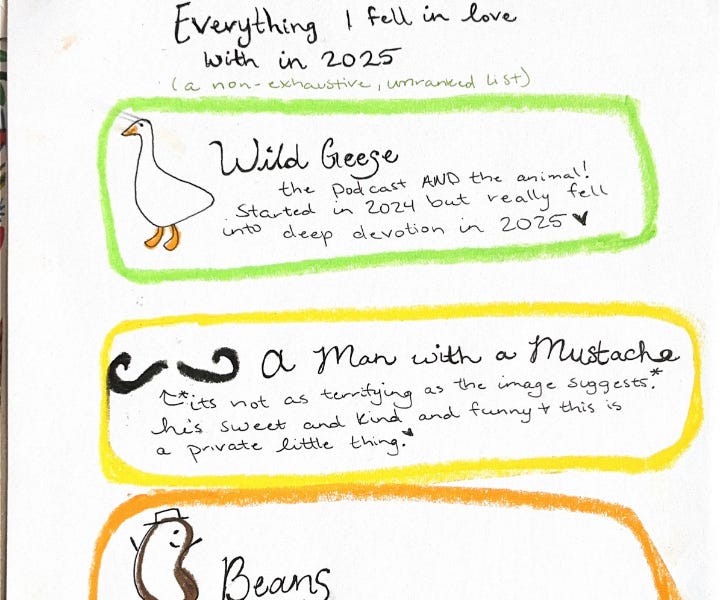 Everything I fell in love
with in 2025
(a non-exhaustive, unranked list)
Wild Geese
the Podcast AND the animal!
Started in 2024 but really fell
into deep devotion in 2025 ♥
a Man with a Mustache
*its not as terrifying as the image suggests.*
he's sweet and kind and funny + this is
a private little thing.♥
Beans